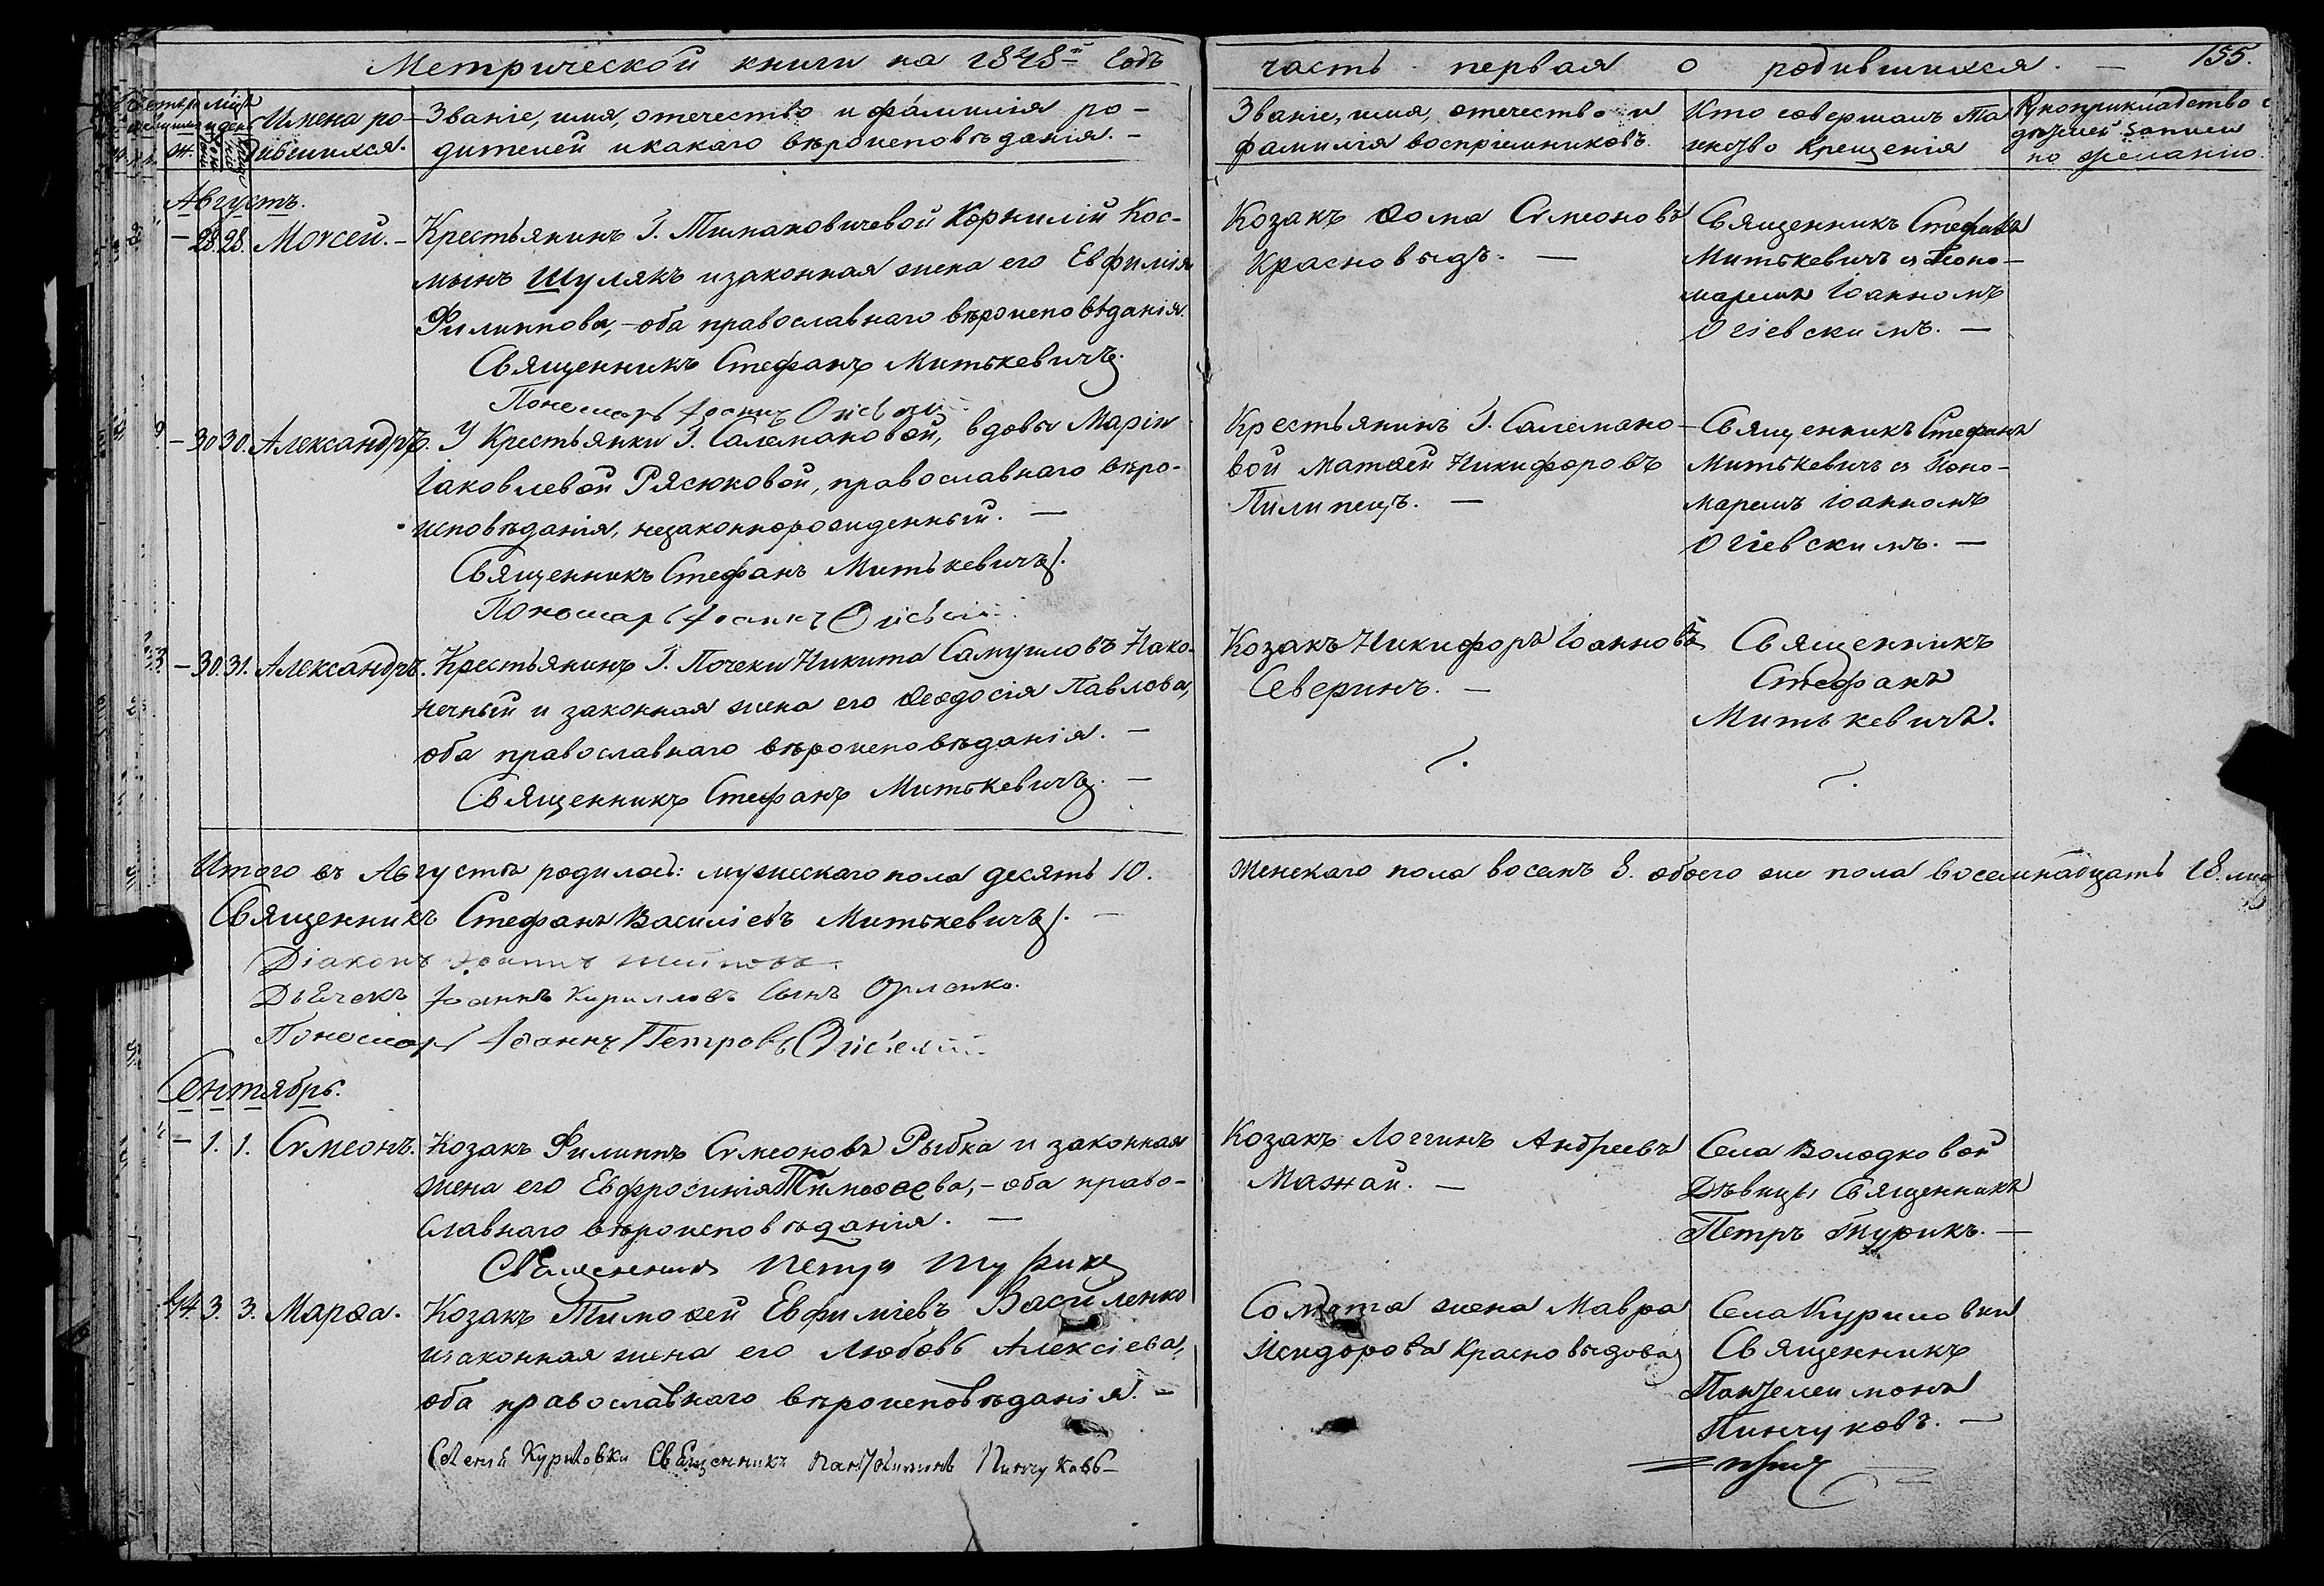 Метрической книги на 1848й Годъ
часть первая о родившихся. — 155.
Имена ро-
дившихся.
Званіе, имя, отечество и фамилія ро-
дителей и какаго вѣроисповѣданія. —
Званіе, имя, отечество и
фамилія воспріемниковъ.
Кто совершалъ Та
инство Крещенія
Рукоприкладство с
дѣтелей записи
по желанію.
Августъ.
— 28. 28. Мовсей. —
Крестьянинъ Г. Тимановичевой Корнилій Кос-
мынъ Шулякъ и законная жена его Евфимія
Филиппова, — оба православнаго вѣроисповѣданія.
Священникъ Стефанъ Митькевичъ.
Пономарь Іоаннъ Огіевскій
Козакъ Ѳома Сѵмеоновъ
Красновыдъ. —
Священникъ Стефанъ
Митькевичъ съ Поно-
маремъ Іоанномъ
Огіевскимъ. —
— 30 30. Александръ.
У Крестьянки Г. Саламановой, вдовы Маріи
Іаковлевой Рясюковой, православнаго вѣро-
исповѣданія, незаконнорожденный. —
Священникъ Стефанъ Митькевичъ.
Пономарь Іоаннъ Огіевскій
Крестьянинъ Г. Саламано-
вой Матѳей Никифоровъ
Пилипецъ. —
Священникъ Стефанъ
Митькевичъ съ Поно-
маремъ Іоанномъ
Огіевскимъ. —
— 30. 31. Александръ.
Крестьянинъ Г. Почеки Никита Самуиловъ Нако-
нечный и законная жена его Ѳеодосія Павлова,
оба православнаго вѣроисповѣданія. —
Священникъ Стефанъ Митькевичъ. —
Козакъ Никифоръ Іоанновъ
Северинъ. —
Священникъ
Стефанъ
Митькевичъ.
Итого въ Августѣ родилось: мужескаго пола десять 10.
Женскаго пола восемь 8. обоего же пола восемнадцать 18.
Священникъ Стефанъ Василіевъ Митькевичъ. —
Діаконъ Іоаннъ
Дьячекъ Іоаннъ Кирилловъ Сынъ Орленко.
Пономарь Іоаннъ Петровъ Огіевскій
Сентябрь.
— 1. 1. Сѵмеонъ.
Козакъ Филиппъ Сѵмеоновъ Рыбка и законная
жена его Евфросинія Тимоѳеева, — оба право-
славнаго вѣроисповѣданія. —
Священникъ Петръ Турикъ
Козакъ Логгинъ Андреевъ
Мажай. —
Села Володковой
Дѣвицы Священникъ
Петръ Турикъ. —
14. 3. 3. Марѳа.
Козакъ Тимоѳей Евфиміевъ Василенко
и законная жена его Любовь Алексіева,
оба православнаго вѣроисповѣданія. —
Куриловки Священникъ Пантелимонъ Пинчуковъ —
Солдата жена Мавра
Исидорова Красновыдова
Села Куриловки
Священникъ
Пантелеимонъ
Пинчуковъ. —